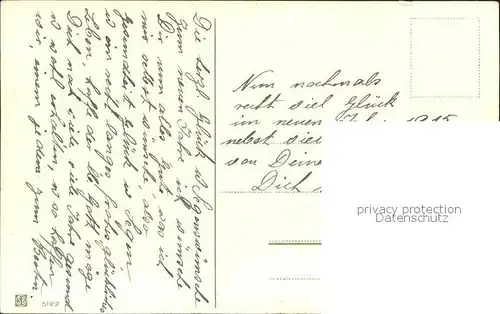 Die herzl. Glück u. Segenswünsche
zum neuen Jahre ich wünsche
Dir nun alles Gute was ich
mir selbst wünsche, also
Gesundheit Glück u. Segen
u. ein recht langes frohes glückliches
Leben, hoffe der lb. Gott möge
Dich noch viele viele Jahre gesund
u. wohl erhalten, u. so hoffen
wir, einem jeden zum
Nun nochmals
recht viel Glück
im neuen
nebst viel
von Deine
Dich
privacy protected
Datenschutz
5122